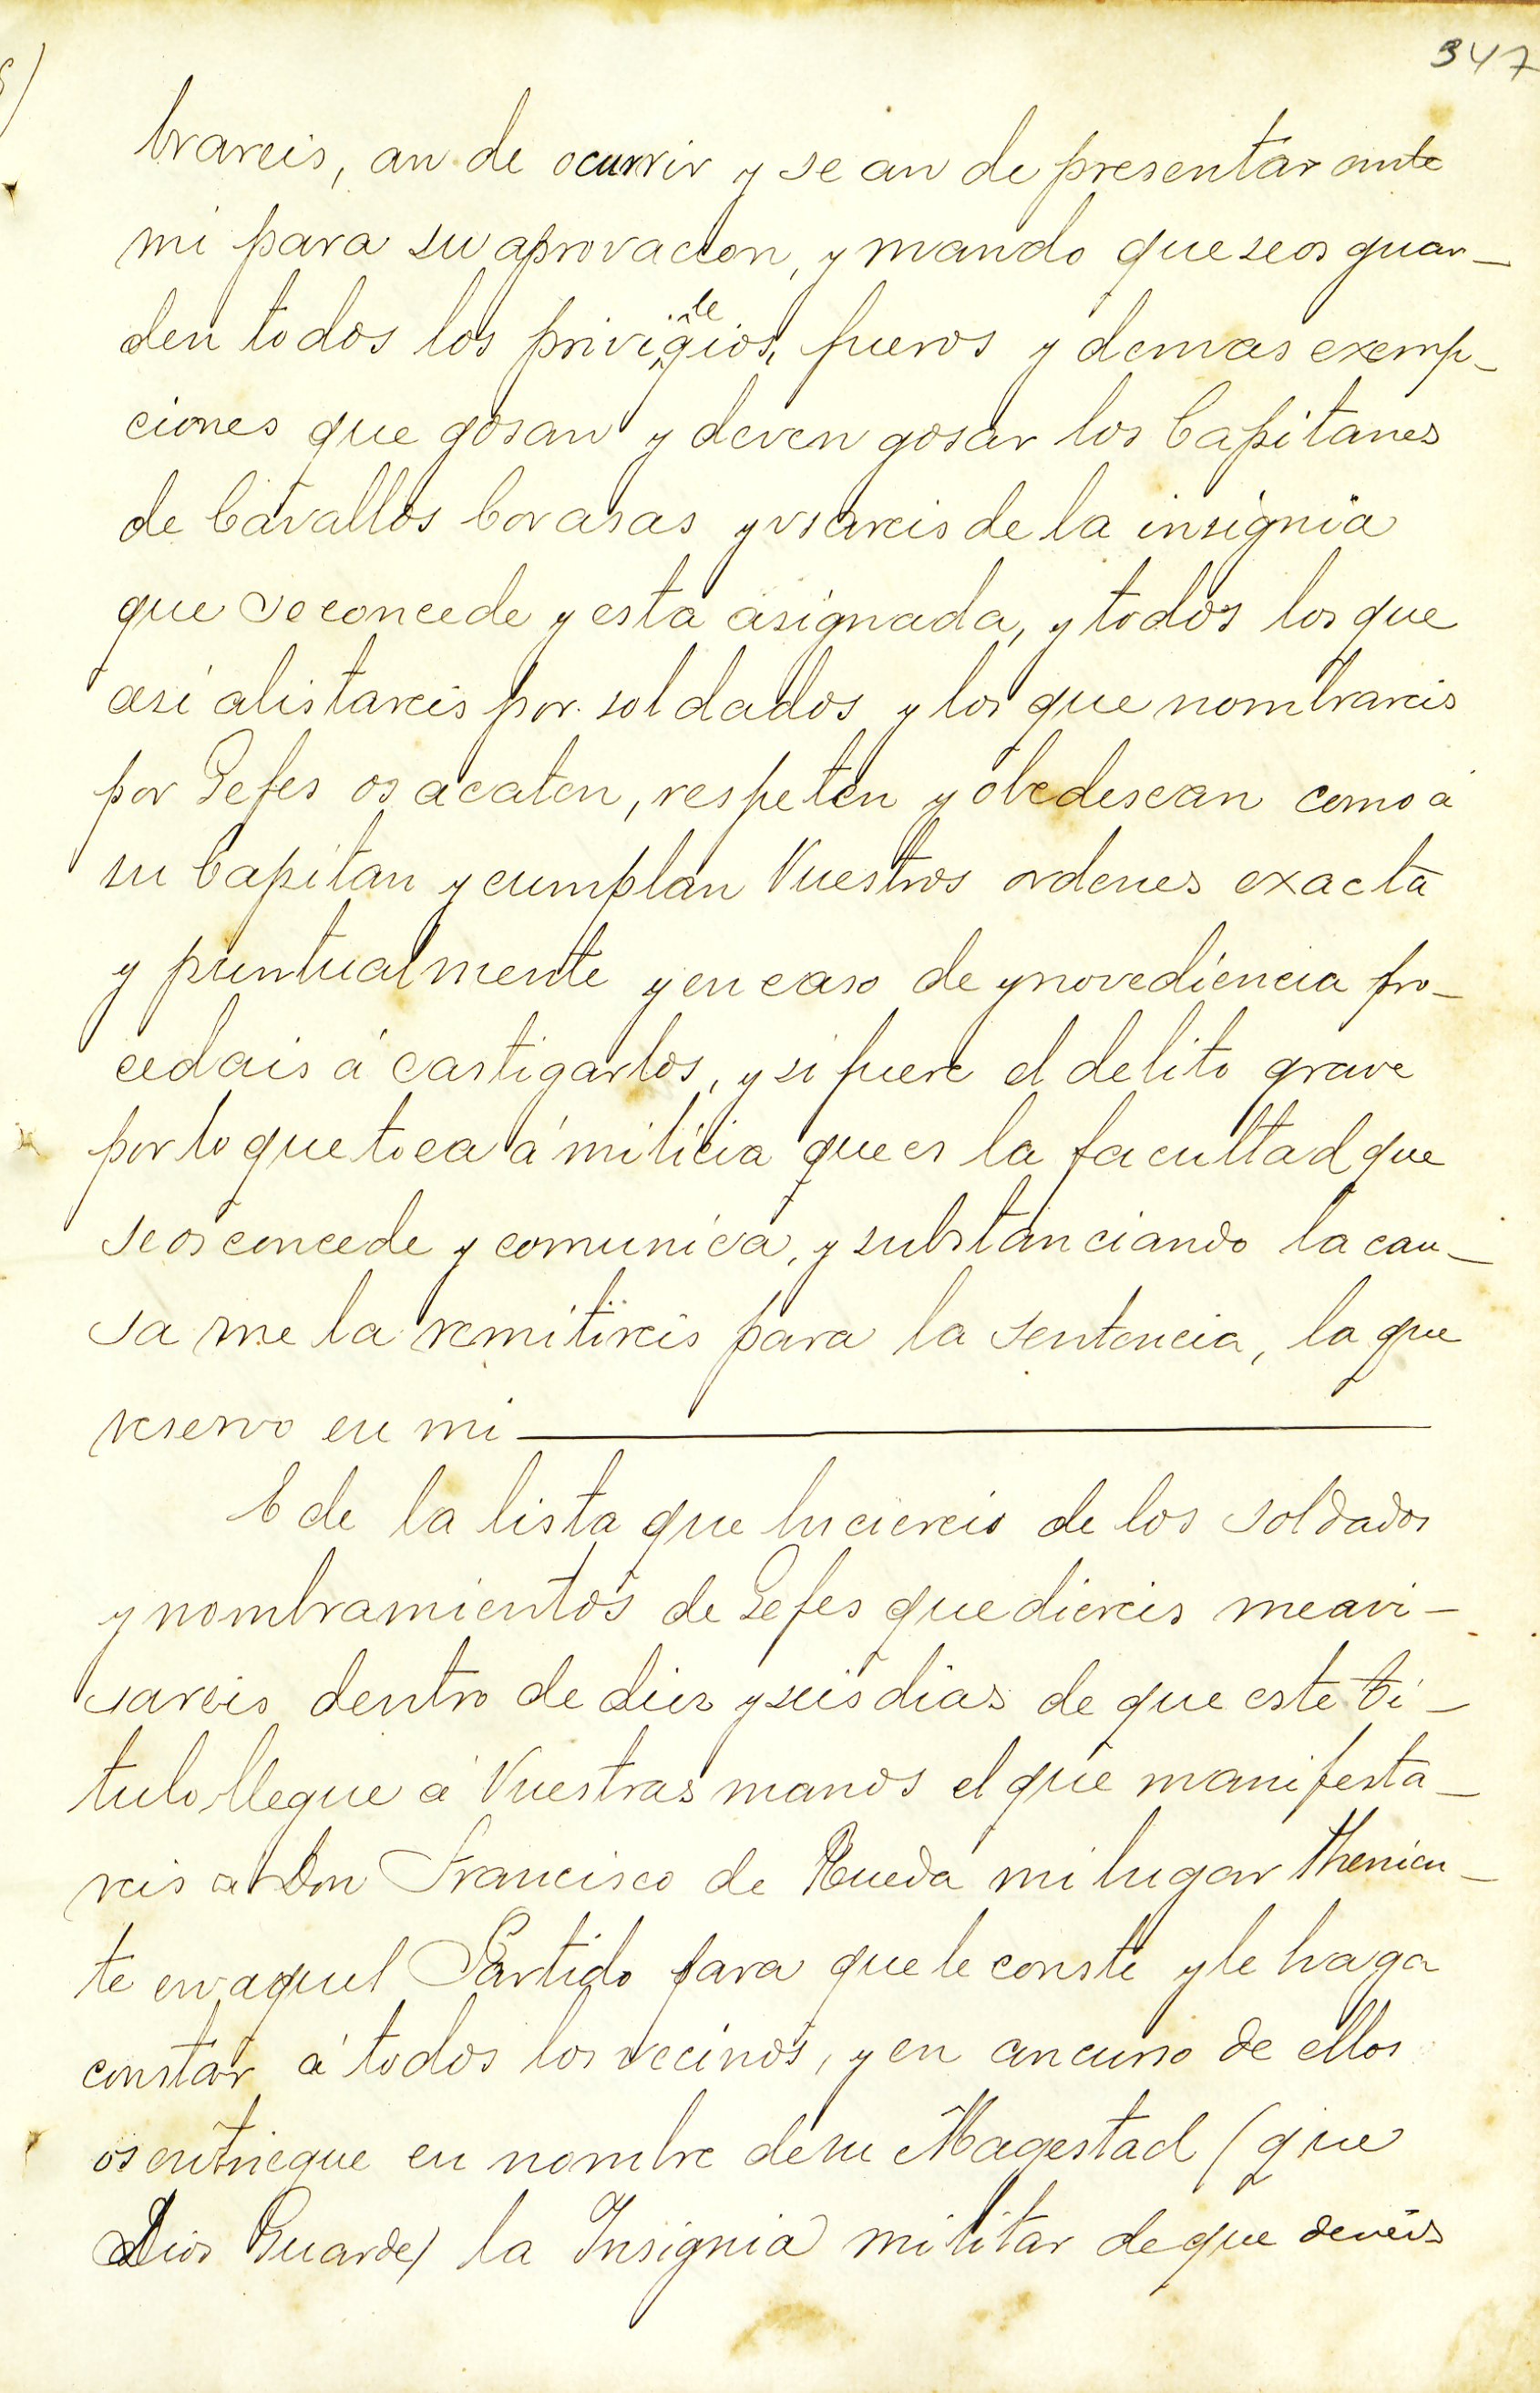 347
brareis, an de ocurrir y se an de presentar ante
mi para su aprovacion, y mando que se os guar-
den todos los privilegios, fueros y demas exemp-
ciones que gosan y deven gosar los Capitanes
de Cavallos Corasas y usareis de la insignia
que se concede y esta asignada, y todos los que
asi alistareis por soldados y los que nombrareis
por Gefes os acaten, respeten y obedescan como á
su Capitan y cumplan Vuestros ordenes exacta
y puntualmente y en caso de ynovediencia pro-
cedais á castigarlos, y si fuere el delito grave
por lo que toca á milicia que es la facultad que
se os concede y comunica, y substanciando la cau-
sa me la remitireis para la sentencia, la que
reservo en mi
E de la lista que hiciereis de los soldados
y nombramientos de Gefes que diereis me avi-
sareis dentro de diez y seis dias de que este ti-
tulo llegue á Vuestras manos el que manifesta-
reis a Don Francisco de Rueda mi lugar Thenien-
te en aquel Partido para que le conste y le haga
constar á todos los vecinos, y en concurso de ellos
os entriegue en nombre de su Magestad (que
Dios Guarde) la Insignia militar de que deveis